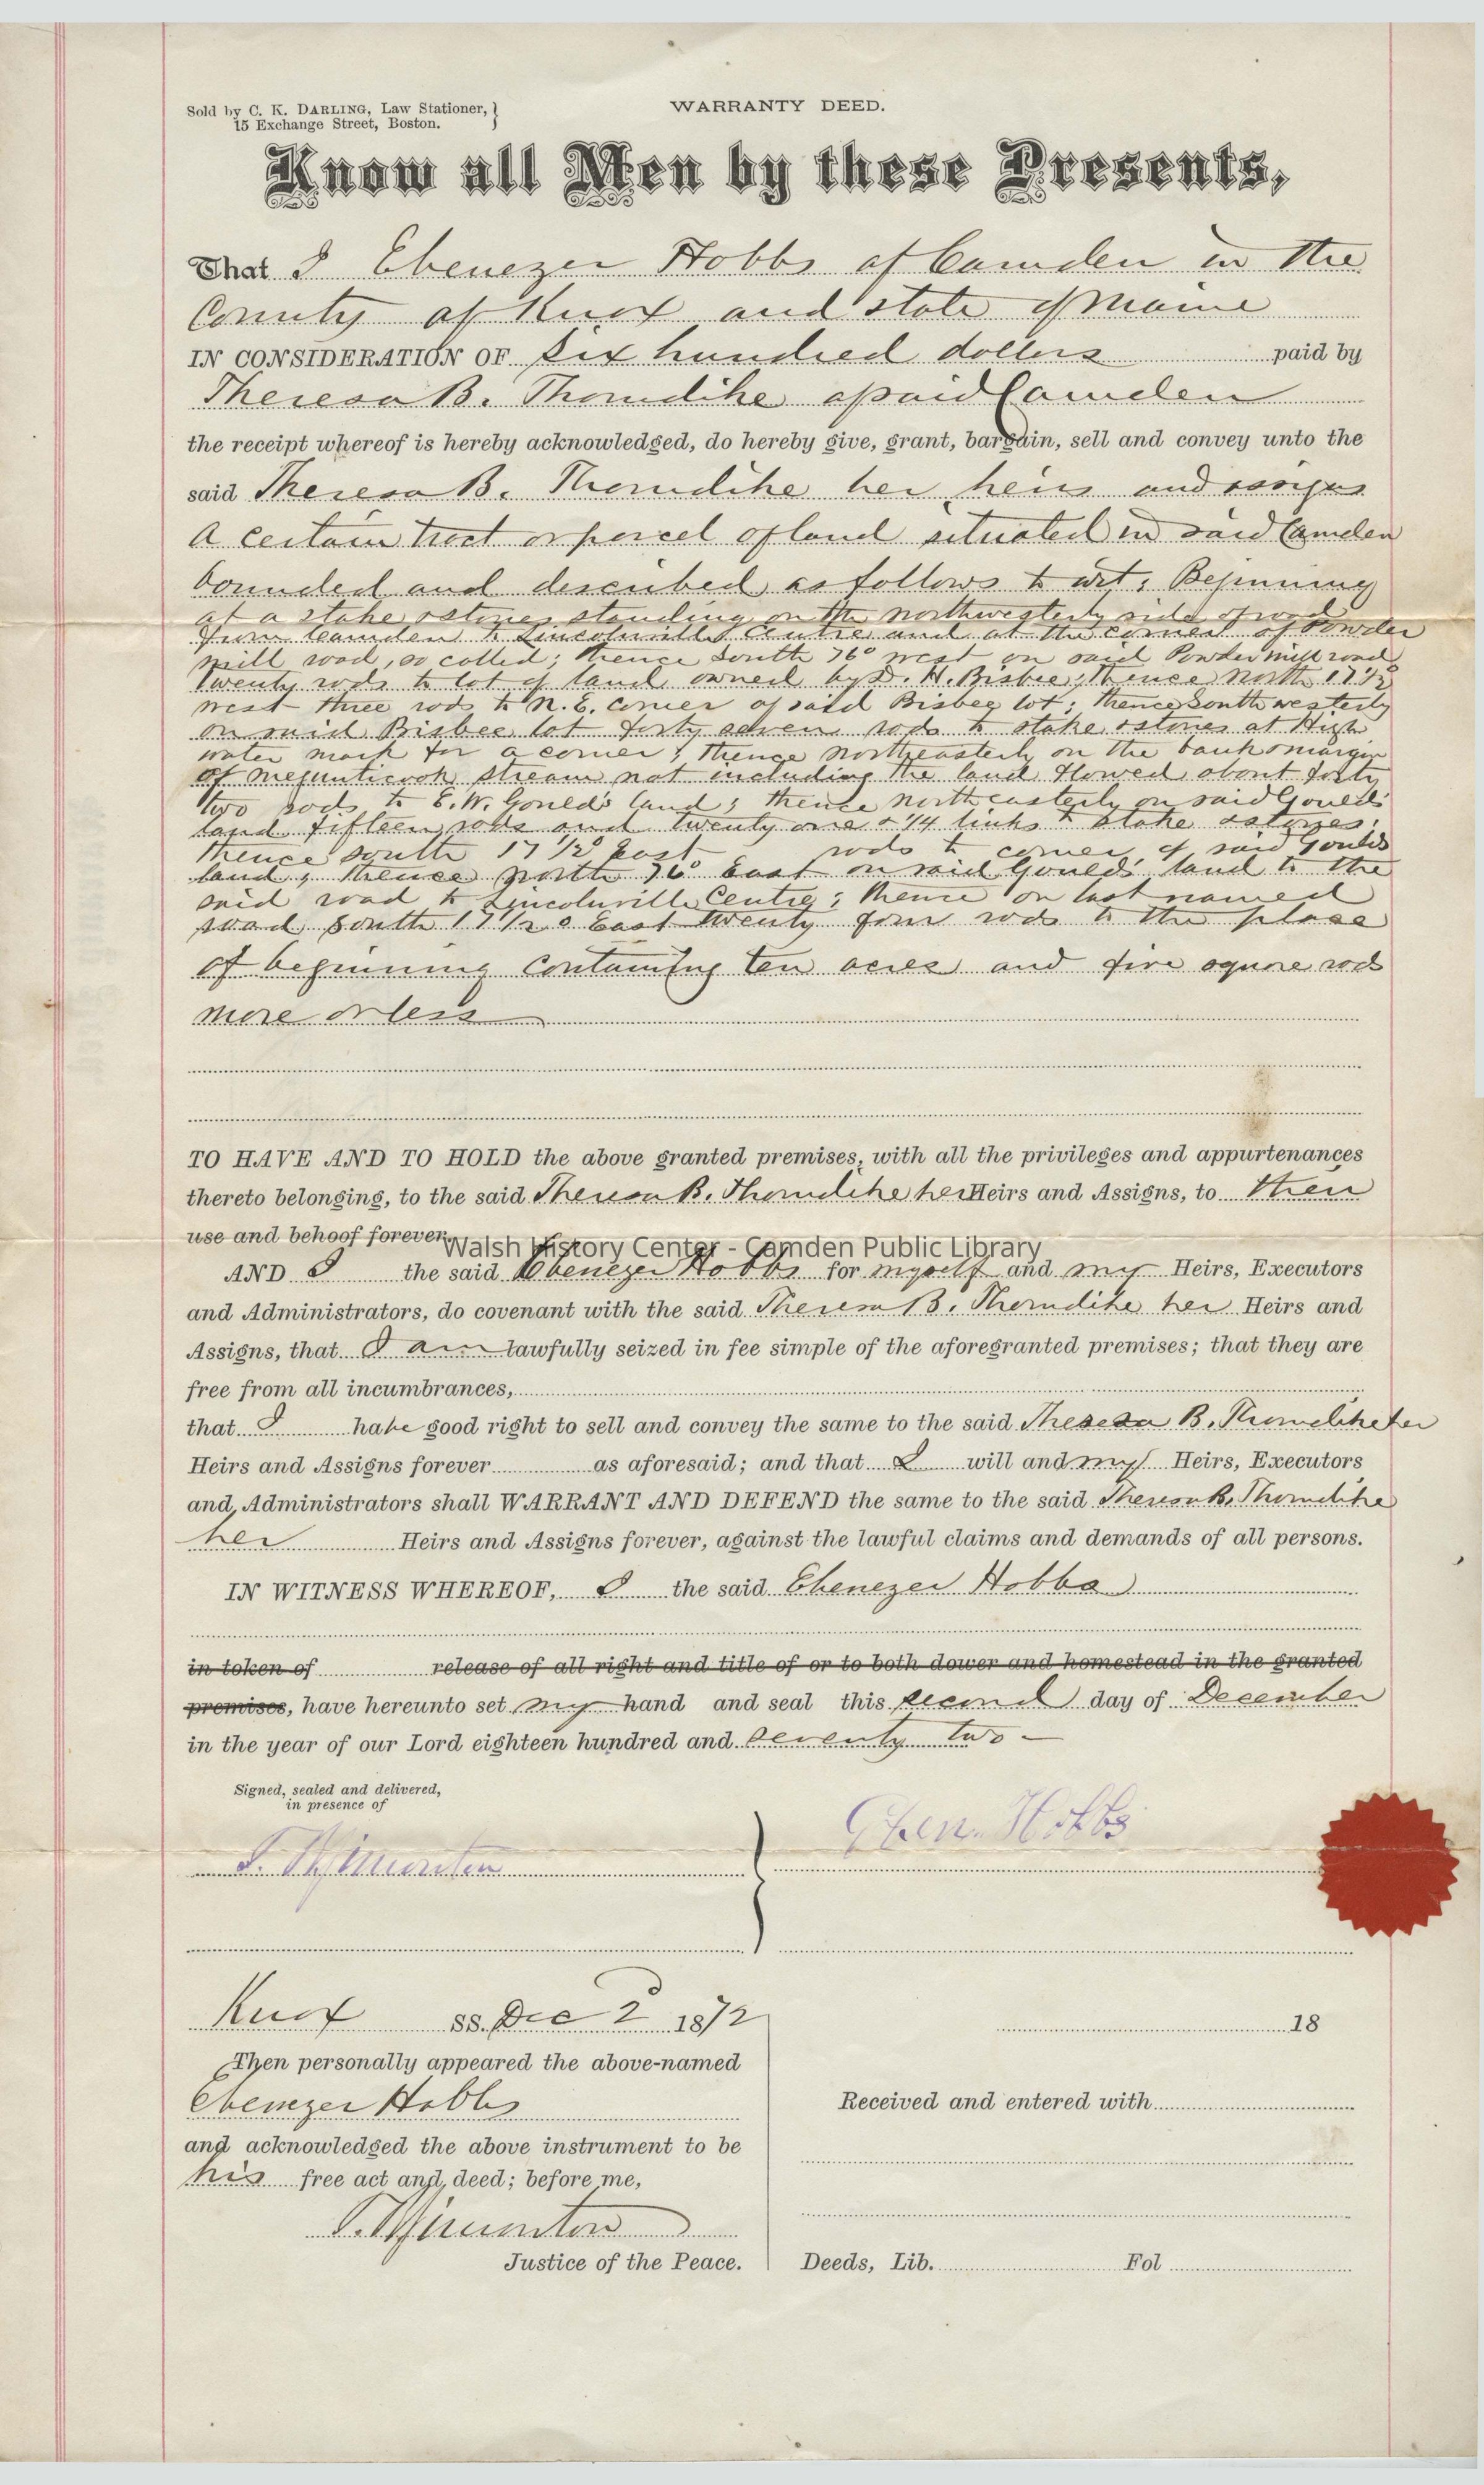 Sold by C. K. DARLING, Law Stationer, }
15 Exchange Street, Boston.
WARRANTY DEED.
Know all Men by these Presents,
That I Ebenezer Hobbs of Camden in the
County of Knox and state of Maine
IN CONSIDERATION OF Six hundred dollars paid by
Theresa B. Thorndike of said Camden
the receipt whereof is hereby acknowledged, do hereby give, grant, bargain, sell and convey unto the
said Theresa B. Thorndike her heirs and assigns
A certain tract or parcel of land situated in said Camden
bounded and described as follows to wit; Beginning
at a stake & stones standing on the northwesterly side of road
from Camden to Lincolnville Centre and at the corner of Powder
mill road, so called; thence South 76° west on said Powder mill road
Twenty rods to lot of land owned by D. H. Bisbee; thence north 17 1/2°
west three rods to N. E. corner of said Bisbee lot; thence Southwesterly
on said Bisbee lot forty seven rods to stake & stones at High
water mark for a corner; thence northeasterly on the bank or margin
of megunticook stream not including the land flowed about forty
two rods to E. W. Gould's land; thence northeasterly on said Gould's
land fifteen rods and twenty one & 1/4 links to stake & stones;
thence south 17 1/2° East rods to corner of said Goulds
land; thence north 76° East on said Gould's land to the
said road to Lincolnville Centre; thence on last named
road South 17 1/2° East twenty four rods to the place
of beginning containing ten acres and five square rods
more or less
TO HAVE AND TO HOLD the above granted premises, with all the privileges and appurtenances
thereto belonging, to the said Theresa B. Thorndike her Heirs and Assigns, to their
use and behoof forever.
Walsh History Center - Camden Public Library
AND I the said Ebenezer Hobbs for myself and my Heirs, Executors
and Administrators, do covenant with the said Theresa B. Thorndike her Heirs and
Assigns, that I am lawfully seized in fee simple of the aforegranted premises; that they are
free from all incumbrances,
that I have good right to sell and convey the same to the said Theresa B. Thorndike her
Heirs and Assigns forever as aforesaid; and that I will and my Heirs, Executors
and Administrators shall WARRANT AND DEFEND the same to the said Theresa B. Thorndike
her Heirs and Assigns forever, against the lawful claims and demands of all persons.
IN WITNESS WHEREOF, I the said Ebenezer Hobbs
in token of release of all right and title of or to both dower and homestead in the granted
premises, have hereunto set my hand and seal this second day of December
in the year of our Lord eighteen hundred and seventy two -
Signed, sealed and delivered,
in presence of
T. R. Simonton
Eben. Hobbs
Knox SS. Dec 2 1872
Then personally appeared the above-named
Ebenezer Hobbs
and acknowledged the above instrument to be
his free act and deed; before me,
T. R. Simonton
Justice of the Peace.
18
Received and entered with
Deeds, Lib. Fol